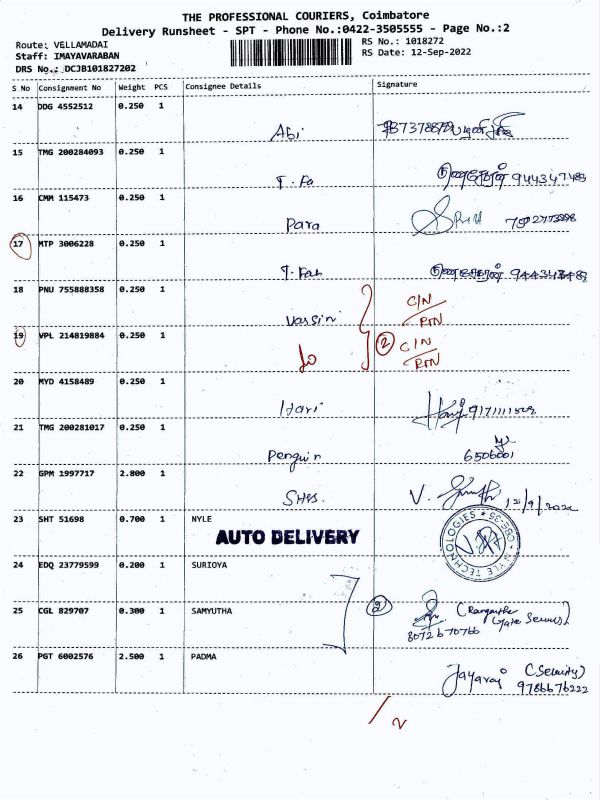 THE PROFESSIONAL COURIERS, Coimbatore
Delivery Runsheet - SPT - Phone No.:0422-3505555 - Page No.:2
Route: VELLAMADAI RS No.: 1018272
Staff: IMAYAVARABAN RS Date: 12-Sep-2022
DRS No.: DCJB101827202
S No Consignment No Weight PCS Consignee Details Signature
14 DDG 4552512 0.250 1
Abi
15 TMG 200284093 0.250 1
T. Fa
16 CMM 115473 0.250 1
Para
17 MTP 3006228 0.250 1
T. Fah
18 PNU 755888358 0.250 1 C/N
Vassini RTN
19 VPL 214819884 0.250 1 2 C/N
Jo RTN
20 MYD 4158489 0.250 1
Hari
21 TMG 200281017 0.250 1
Penguin
22 GPM 1997717 2.800 1
V. 12/9/2022
23 SHT 51698 0.700 1 NYLE
AUTO DELIVERY
NYLE TECHNOLOGIES CBE-35
24 EDQ 23779599 0.200 1 SURIOYA
25 CGL 829707 0.300 1 SAMYUTHA 2
8072670766
26 PGT 6002576 2.500 1 PADMA
Jayaraj (Security)
9786676222
/2